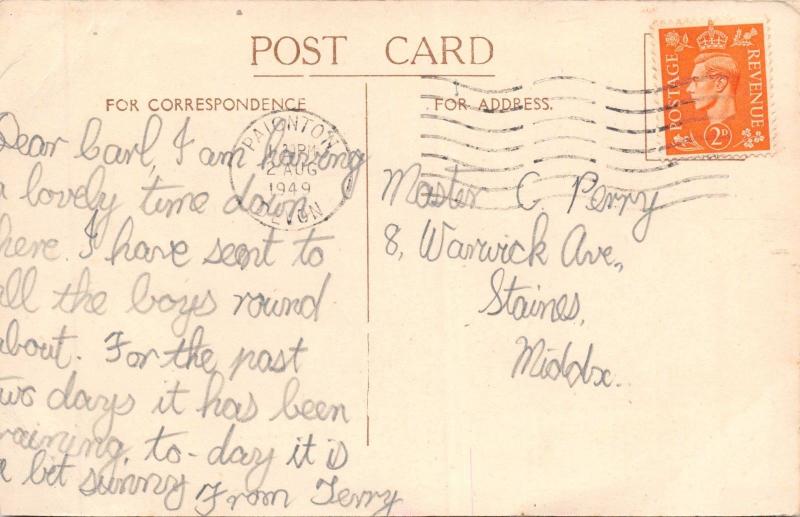 POST CARD
FOR CORRESPONDENCE
FOR ADDRESS.
POSTAGE REVENUE
2D
PAIGNTON
PM
2 AUG
1949
DEVON
Dear Carl, I am having
a lovely time down
here. I have sent to
all the boys round
about. For the past
two days it has been
raining, to-day it is
a bit sunny From Terry
Master C. Perry
8, Warwick Ave.,
Staines,
Middx.